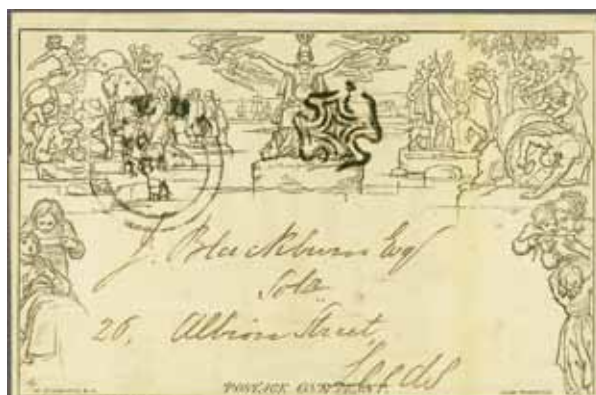 J. Blackburn Esq
Solr
26, Albion Street,
Leeds
POSTAGE